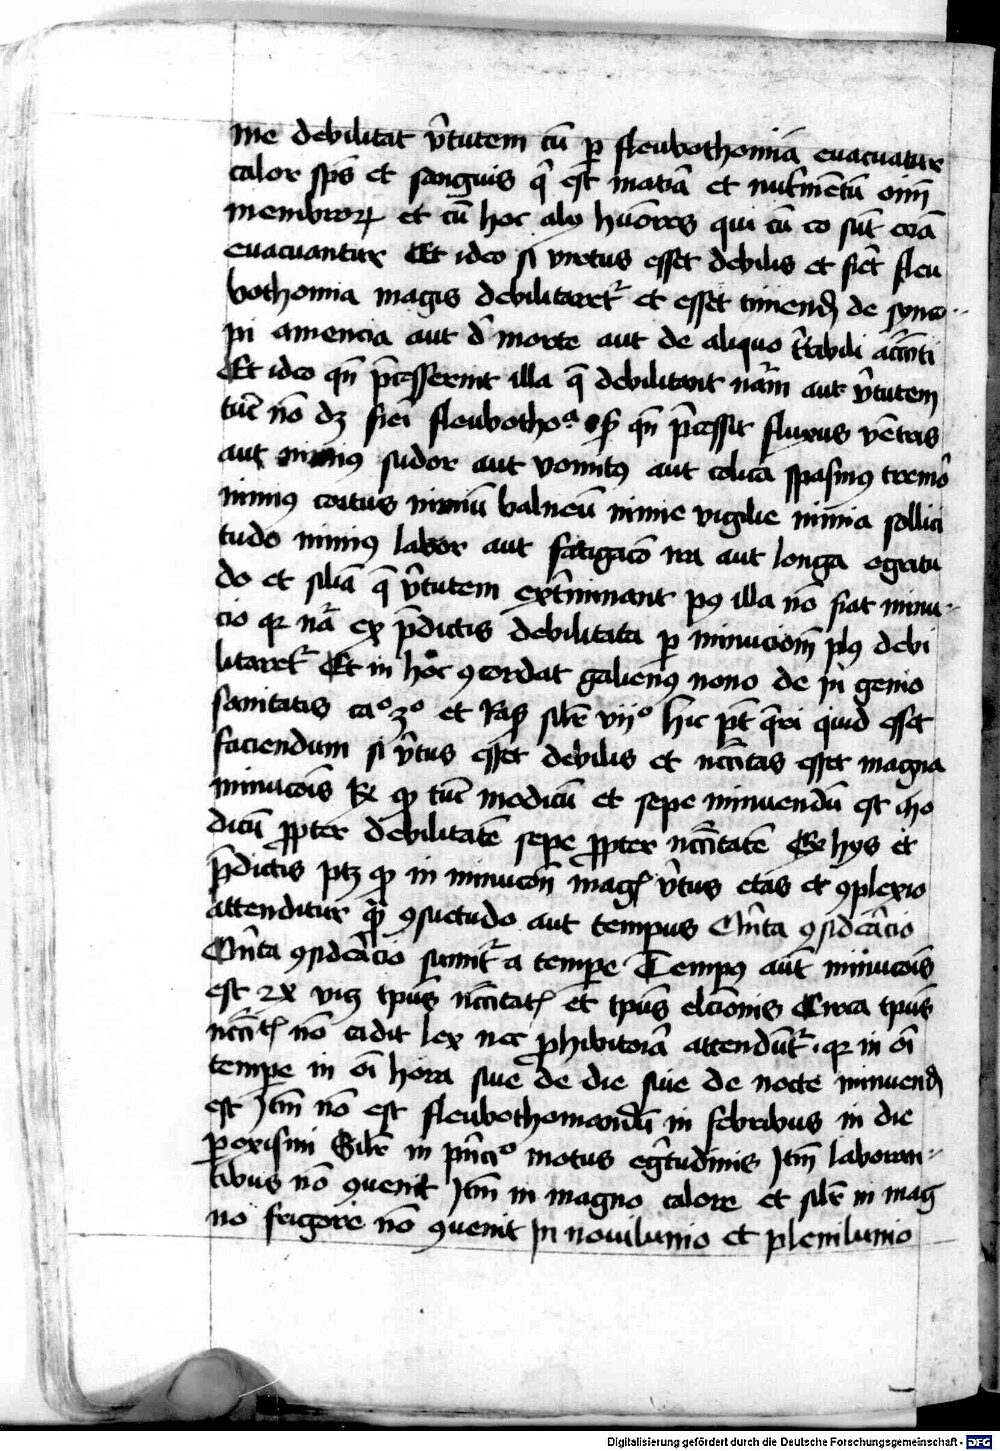 me debilitat v̄tutem cū ꝑ fleubothomiā euacuatur
calor sp̄s et sanguis q̄ est mat̄ia et nut̄mētū oīm
membroꝝ et cū hoc alij hūores qui cū eo sūt eciā
euacuantur Et ideo si virtus esset debilis et fiet̄ fleu
bothomia magis debilitaret᷑ et esset timend̄ de sync
pi amencia aut d̄ morte aut de aliquo t̄ribili acc̄nti
Et ideo qn̄ p̄cesserint illa q̄ debilitant nām aut v̄tutem
tūc nō dꝫ fieri fleubothoᵃ qn̄ p̄cessit fluxus vētris
aut nimiꝰ sudor aut vomitꝰ aut colica spasmꝰ tremō
nimiꝰ coitus nimiū balneū nimie vigilie nimia sollici
tudo nimiꝰ labor aut fatigacō ira aut longa egritu
do et silīa q̄ v̄tutem ext̄minant pꝰ illa nō fiat minu-
cio qr nā ex p̄dictis debilitata ꝑ minucionē plꝰ debi
litaret᷑ Et in hoc ꝯcordat galienꝰ nono de in genio
sanitatis caº 3º et Ras̄ silr̄ vijº hic pt̄ q̄ri quid esset
faciendum si v̄tus esset debilis et nccītas esset magna
minucōis R̄ ꝙ tūc modicū et sepe minuendū est mo
dicū ꝓpter debilitatē sepe ꝓpter nccītatē Ex hys et
p̄dictis ptꝫ ꝙ in minucōn maḡ v̄tus etas et ꝯplexio
attenditur ꝙ̄ ꝯsuetudo aut tempus Quīta ꝯsid̄acio
Quīta ꝯsid̄acio sumit᷑ a tempe Tempꝰ aūt minucōis
est 2x viꝫ tpūs nccītat̄ et tpūs elcōnis Circa tpūs
nccīt̄ nō cadit lex nec ꝓhibitoria attendūt᷑ qr in oī
tempe in oī hora siue de die siue de nocte minuend̄
est Itm̄ nō est fleubothomandū in febribus in die
ꝑoxismi Silr̄ in pn̄ciº motus eḡtudinis Itm̄ laboran-
tibus nō ꝯuenit Itm̄ in magno calore et silr̄ in mag
no frigore nō ꝯuenit In nouilunio et plenilunio
Digitalisierung gefördert durch die Deutsche Forschungsgemeinschaft - DFG